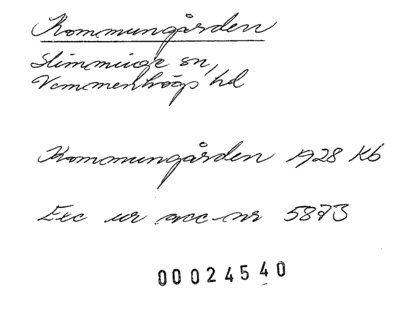 Kommungården
Slimminge sn,
Vemmenhögs hd
Kommungården 1928 Kb
Exc ur acc nr 5873
00024540